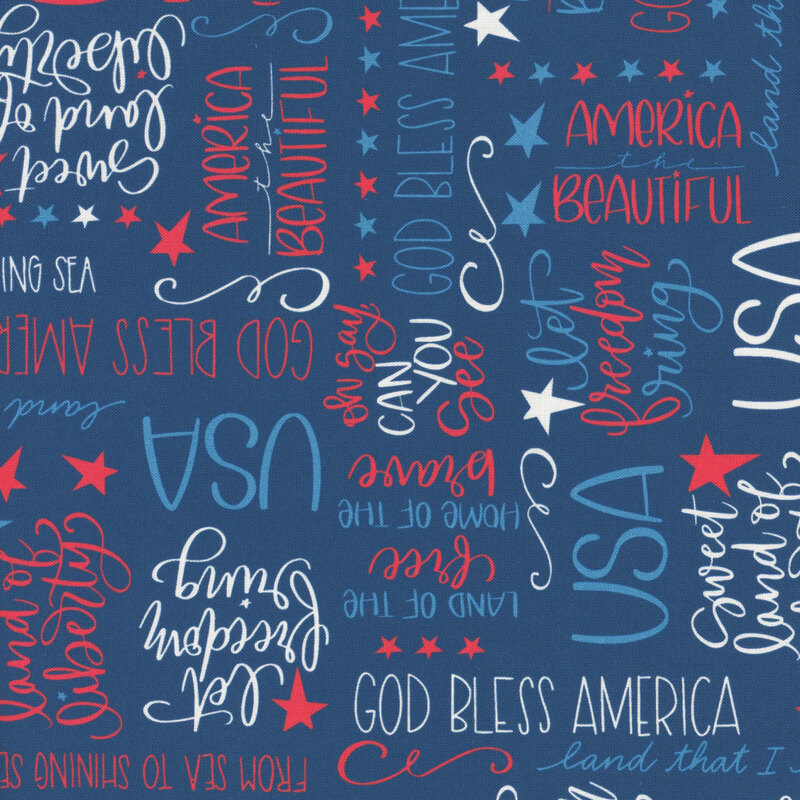 Sweet
land of
liberty
AMERICA
the
BEAUTIFUL
GOD BLESS AME
GOD
land th
AMERICA
the
BEAUTIFUL
NING SEA
GOD BLESS AMER
oh say
CAN
YOU
see
let
freedom
ring
USA
land
USA
LAND OF THE
free
HOME OF THE
brave
USA
Sweet
land of
land of
liberty
let
freedom
ring
GOD BLESS AMERICA
land that I
FROM SEA TO SHINING SE